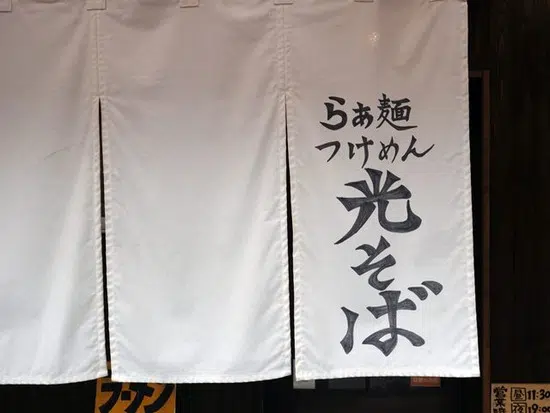 らぁ麺
つけめん
光そば
ラーメン
営業時
昼11:30
夜19:00